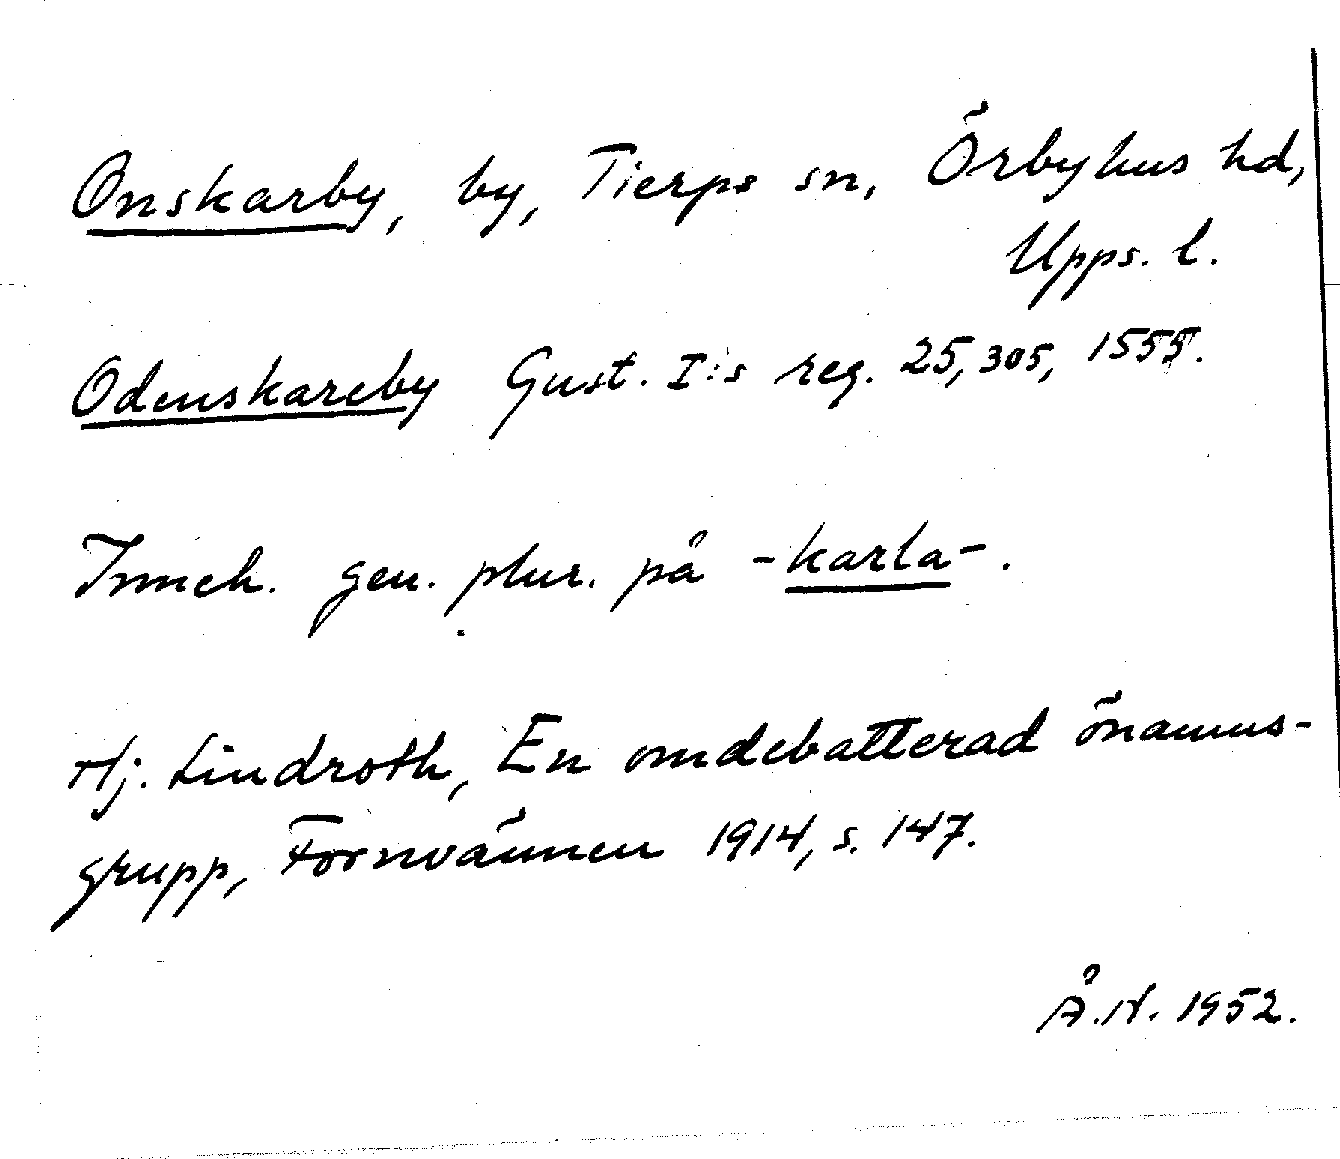 Onskarby, by, Tierps sn, Örbyhus hd,
Upps. l.
Odenskareby Gust. I:s reg. 25, 305, 1555.
Inneh. gen. plur. på -karla-.
Hj. Lindroth, En omdebatterad önamns-
grupp, Fornvännen 1914, s. 147.
Å.N. 1952.